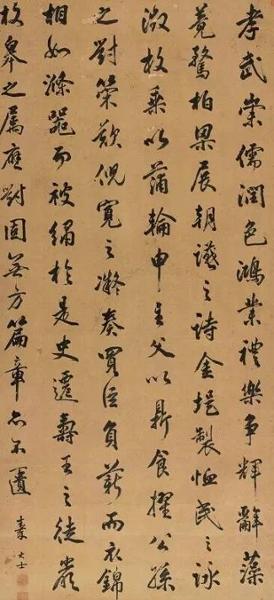 孝武崇儒潤色鴻業禮樂爭輝辭藻
競鶩柏梁展朝讌之詩金堤製恤民之詠
徵枚乘以蒲輪申主父以鼎食擢公孫
之對策歎倪寬之擬奏買臣負薪而衣錦
相如滌器而被繡於是史遷壽王之徒嚴
枚皋之屬應對固無方篇章亦不匱
秦大士